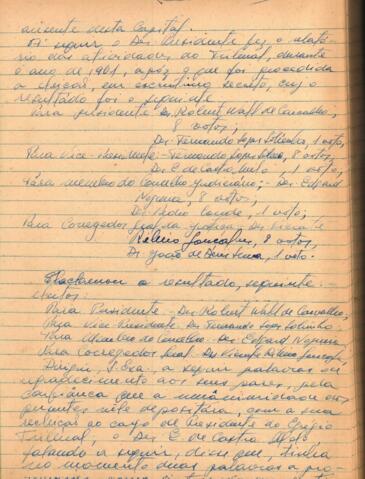 ausente desta Capital.
A seguir o Des. Presidente fez o relató-
rio das atividades do Tribunal, durante
o ano de 1961, após o que foi procedida
a eleição, em escrutínio secreto, cujo
resultado foi o seguinte
Para presidente Des. Robert Wall de Carvalho,
8 votos;
Des. Fernando Lopes Sobrinho, 1 voto,
Para Vice-Presidente - Fernando Lopes Sobrinho, 8 votos,
Des. E. de Castro Neto, 1 voto;
Para membro do Conselho Judiciário; - Des. Edgard
Nogueira, 8 votos;
Des. Pedro Conde, 1 voto;
Para Corregedor Geral da Justiça - Des. Vicente
Ribeiro Gonçalves, 8 votos,
Des. João de Deus 1 voto.
Proclamou o resultado, seguinte:
eleitos:
Para Presidente - Des. Robert Wall de Carvalho;
Para Vice-Presidente Des. Fernando Lopes Sobrinho.
Para Membro do Conselho - Des. Edgard Nogueira
Para Corregedor Geral - Des. Vicente Ribeiro Gonçalves.
Dirigiu, S. Exa. a seguir palavras de
agradecimento aos seus pares, pela
confiança que a unanimidade dos
presentes nele depositara, com a sua
reeleição ao cargo de Presidente do Egrégio
Tribunal, o Des. E. de Castro Neto
falando a seguir, disse que, tinha
no momento duas palavras a pro-